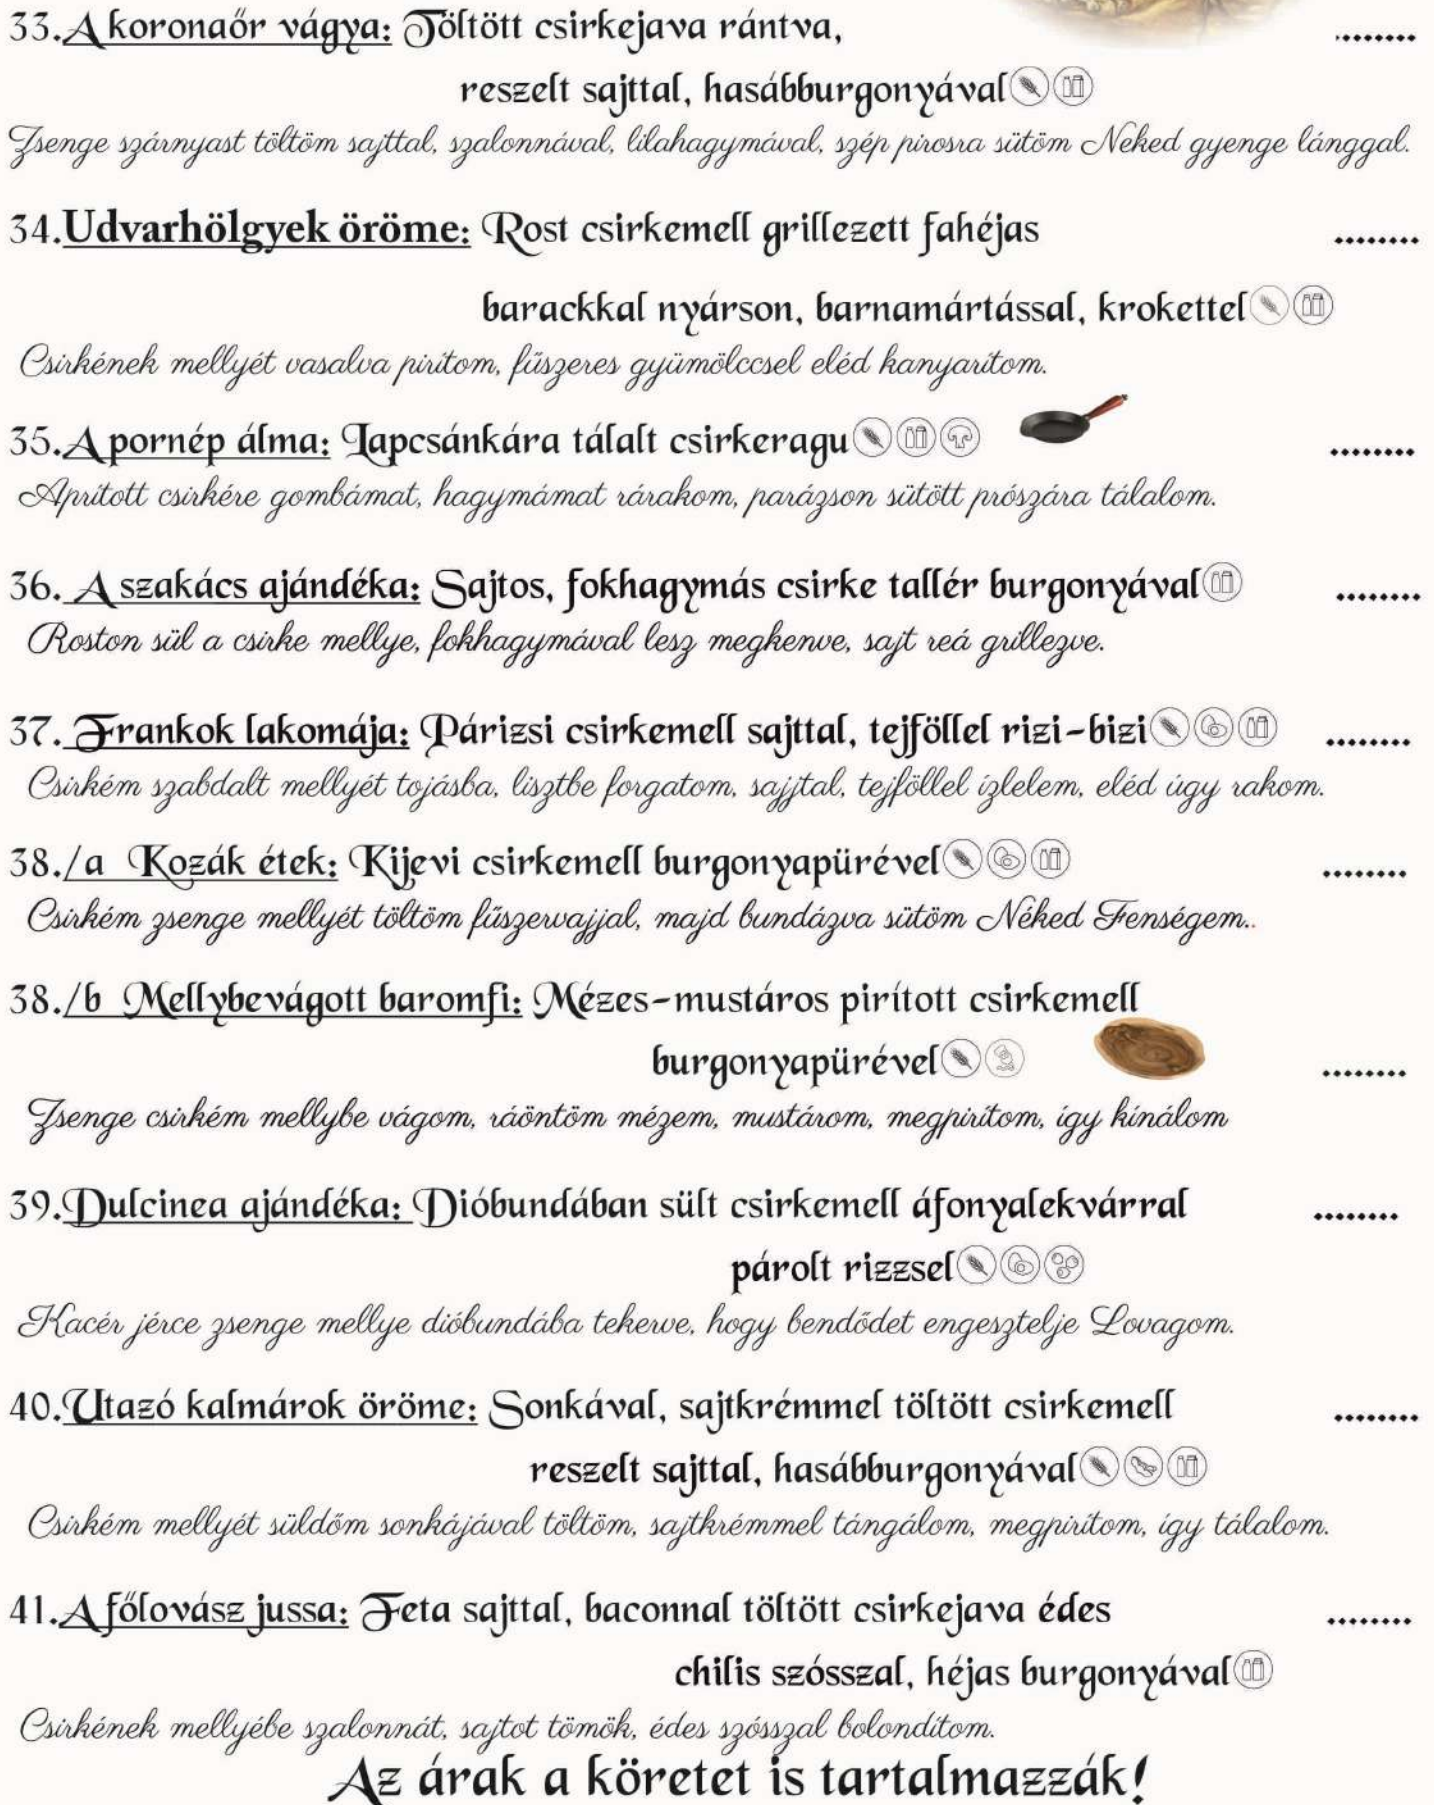 33.A koronaőr vágya: Töltött csirkejava rántva, ........
reszelt sajttal, hasábburgonyával
Zsenge szárnyast töltöm sajttal, szalonnával, lilahagymával, szép pirosra sütöm Neked gyenge lánggal.
34.Udvarhölgyek öröme: Rost csirkemell grillezett fahéjas ........
barackkal nyárson, barnamártással, krokettel
Csirkének mellyét vasalva pirítom, fűszeres gyümölccsel eléd kanyarítom.
35.A pornép álma: Lapcsánkára tálalt csirkeragu ........
Aprított csirkére gombámat, hagymámat rárakom, parázson sütött prószára tálalom.
36. A szakács ajándéka: Sajtos, fokhagymás csirke tallér burgonyával ........
Roston sül a csirke mellye, fokhagymával lesz megkenve, sajt reá grillezve.
37. Frankok lakomája: Párizsi csirkemell sajttal, tejföllel rizi-bizi ........
Csirkém szabdalt mellyét tojásba, lisztbe forgatom, sajjtal, tejföllel ízlelem, eléd úgy rakom.
38./a Kozák étek: Kijevi csirkemell burgonyapürével ........
Csirkém zsenge mellyét töltöm fűszervajjal, majd bundázva sütöm Néked Fenségem..
38./b Mellybevágott baromfi: Mézes-mustáros pirított csirkemell
burgonyapürével ........
Zsenge csirkém mellybe vágom, ráöntöm mézem, mustárom, megpirítom, így kínálom
39.Dulcinea ajándéka: Dióbundában sült csirkemell áfonyalekvárral ........
párolt rizzsel
Kacér jérce zsenge mellye dióbundába tekerve, hogy bendődet engesztelje Lovagom.
40.Utazó kalmárok öröme: Sonkával, sajtkrémmel töltött csirkemell ........
reszelt sajttal, hasábburgonyával
Csirkém mellyét süldőm sonkájával töltöm, sajtkrémmel tángálom, megpirítom, így tálalom.
41.A főlovász jussa: Feta sajttal, baconnal töltött csirkejava édes ........
chilis szósszal, héjas burgonyával
Csirkének mellyébe szalonnát, sajtot tömök, édes szósszal bolondítom.
Az árak a köretet is tartalmazzák!